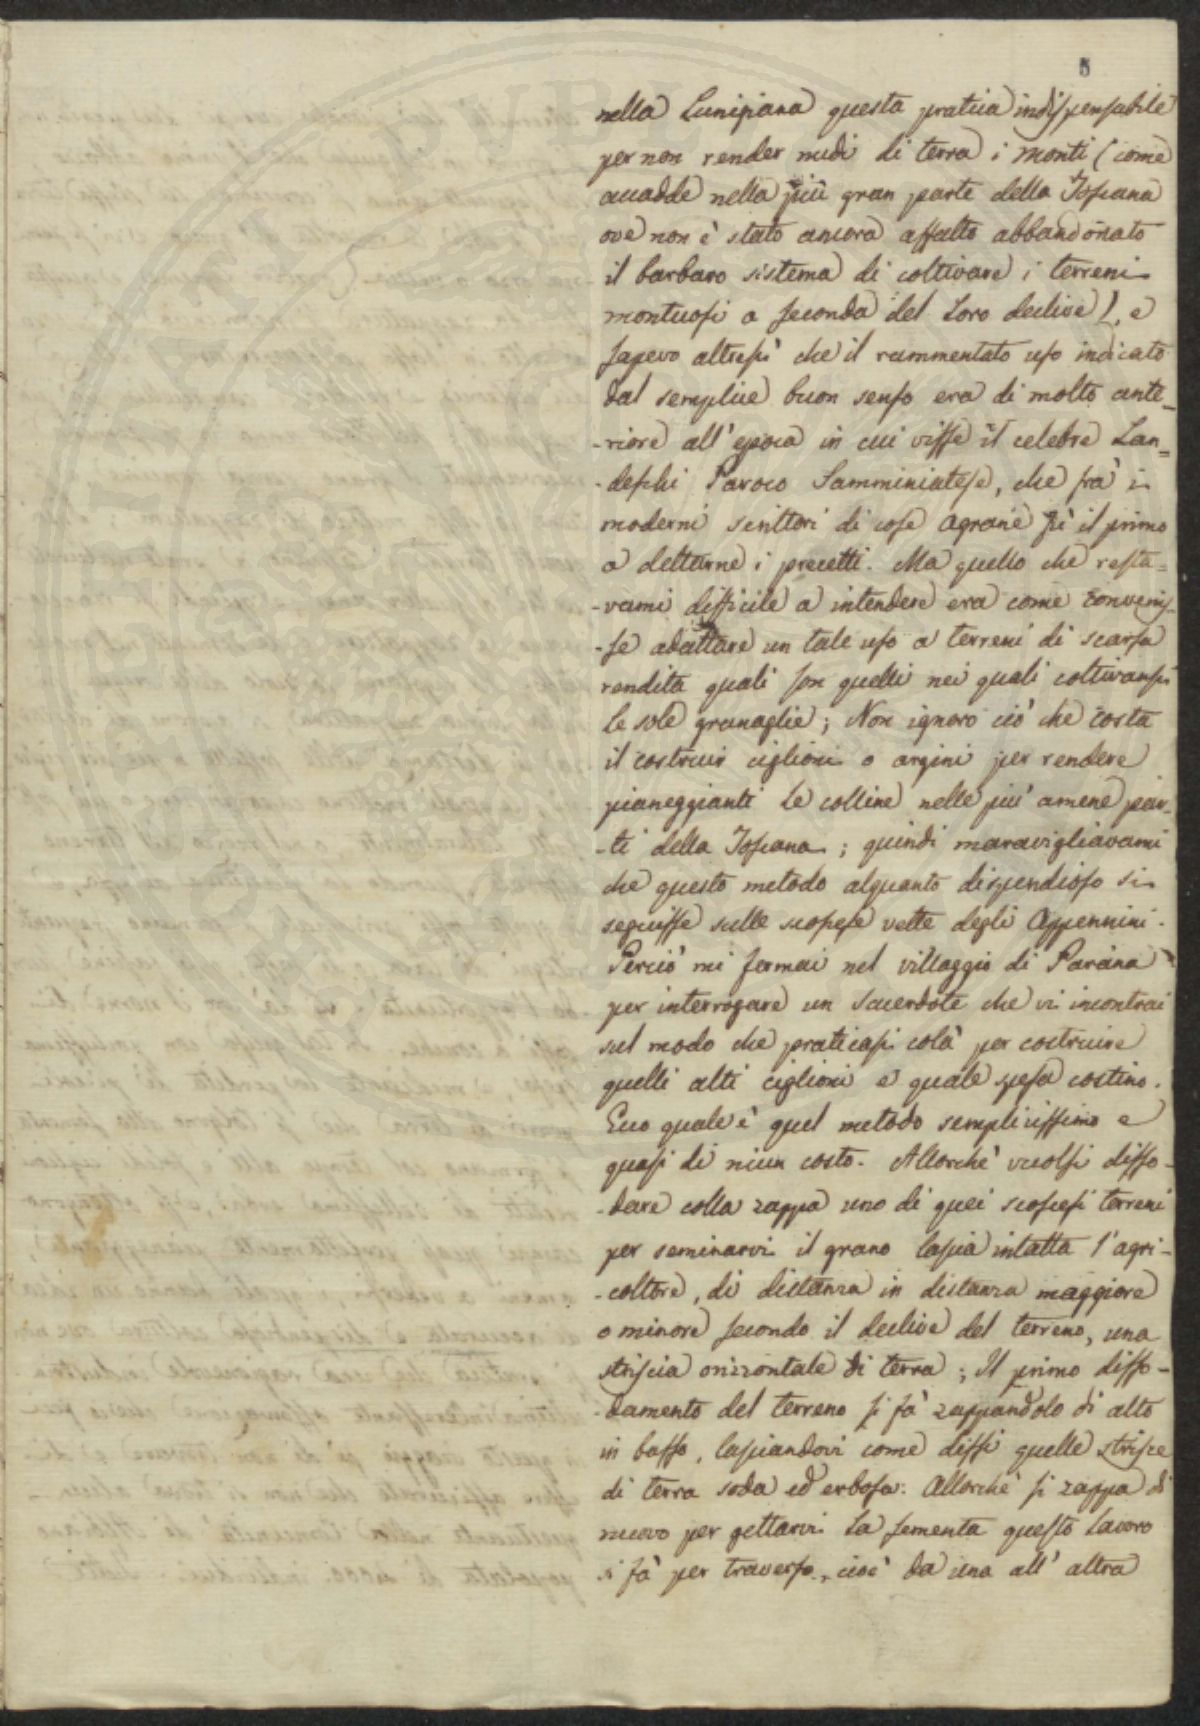 5
nella Lunigiana questa pratica indispensabile
per non render nudi di terra i monti (come
accadde nella più gran parte della Toscana
ove non è stato ancora affatto abbandonato
il barbaro sistema di coltivare i terreni
montuosi a seconda del loro declive), e
sapevo altresì che il rammentato uso indicato
dal semplice buon senso era di molto ante=
-riore all'epoca in cui visse il celebre Lan=
-deschi Paroco Samminiatese, che frà i
moderni scrittori di cose agrarie fù il primo
a dettarne i precetti. Ma quello che resta=
-vami difficile a intendere era come convenis-
-se adattare un tale uso a terreni di scarsa
rendita quali son quelli nei quali coltivansi
le sole granaglie; Non ignoro ciò che costa
il costruir ciglioni o argini per rendere
pianeggianti le colline nelle più amene par-
-ti della Toscana; quindi maravigliavami
che questo metodo alquanto dispendioso si
seguisse sulle scoscese vette degli Appennini.
Perciò mi fermai nel villaggio di Parana
per interrogare un sacerdote che vi incontrai
sul modo che praticasi colà per costruire
quelli alti ciglioni e quale spesa costino.
Ecco quale è quel metodo semplicissimo e
quasi di niun costo. Allorchè vuolsi disso-
-dare colla zappa uno di quei scoscesi terreni
per seminarvi il grano lascia intatta l'agri-
-coltore, di distanza in distanza maggiore
o minore secondo il declive del terreno, una
striscia orizzontale di terra; Il primo disso-
-damento del terreno si fà zappandolo di alto
in basso, lasciandovi come dissi quelle strisce
di terra soda ed erbosa. Allorchè si zappa di
nuovo per gettarvi la sementa questo lavoro
si fà per traverso, cioè da una all'altra